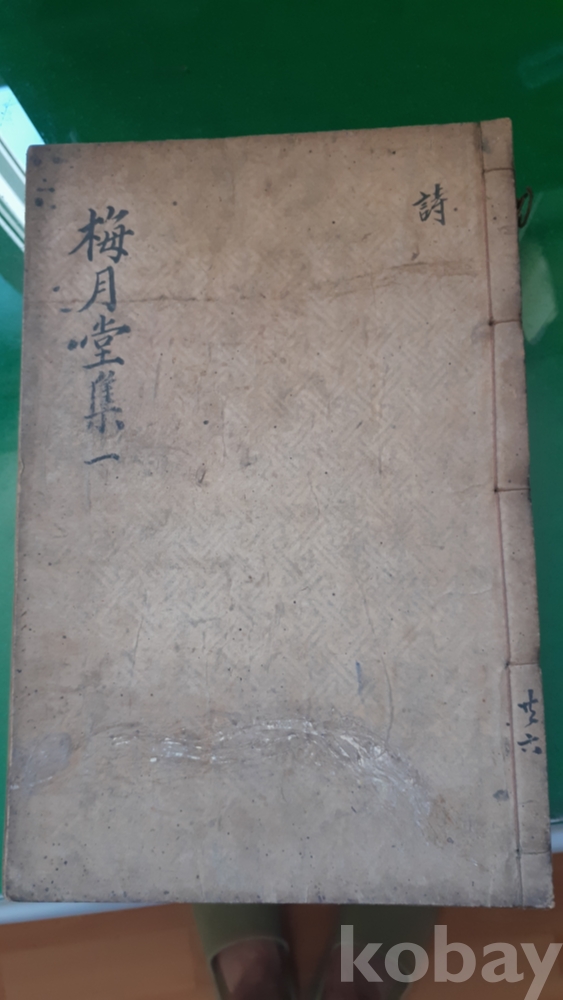 詩
梅月堂集 一
共六
kobay